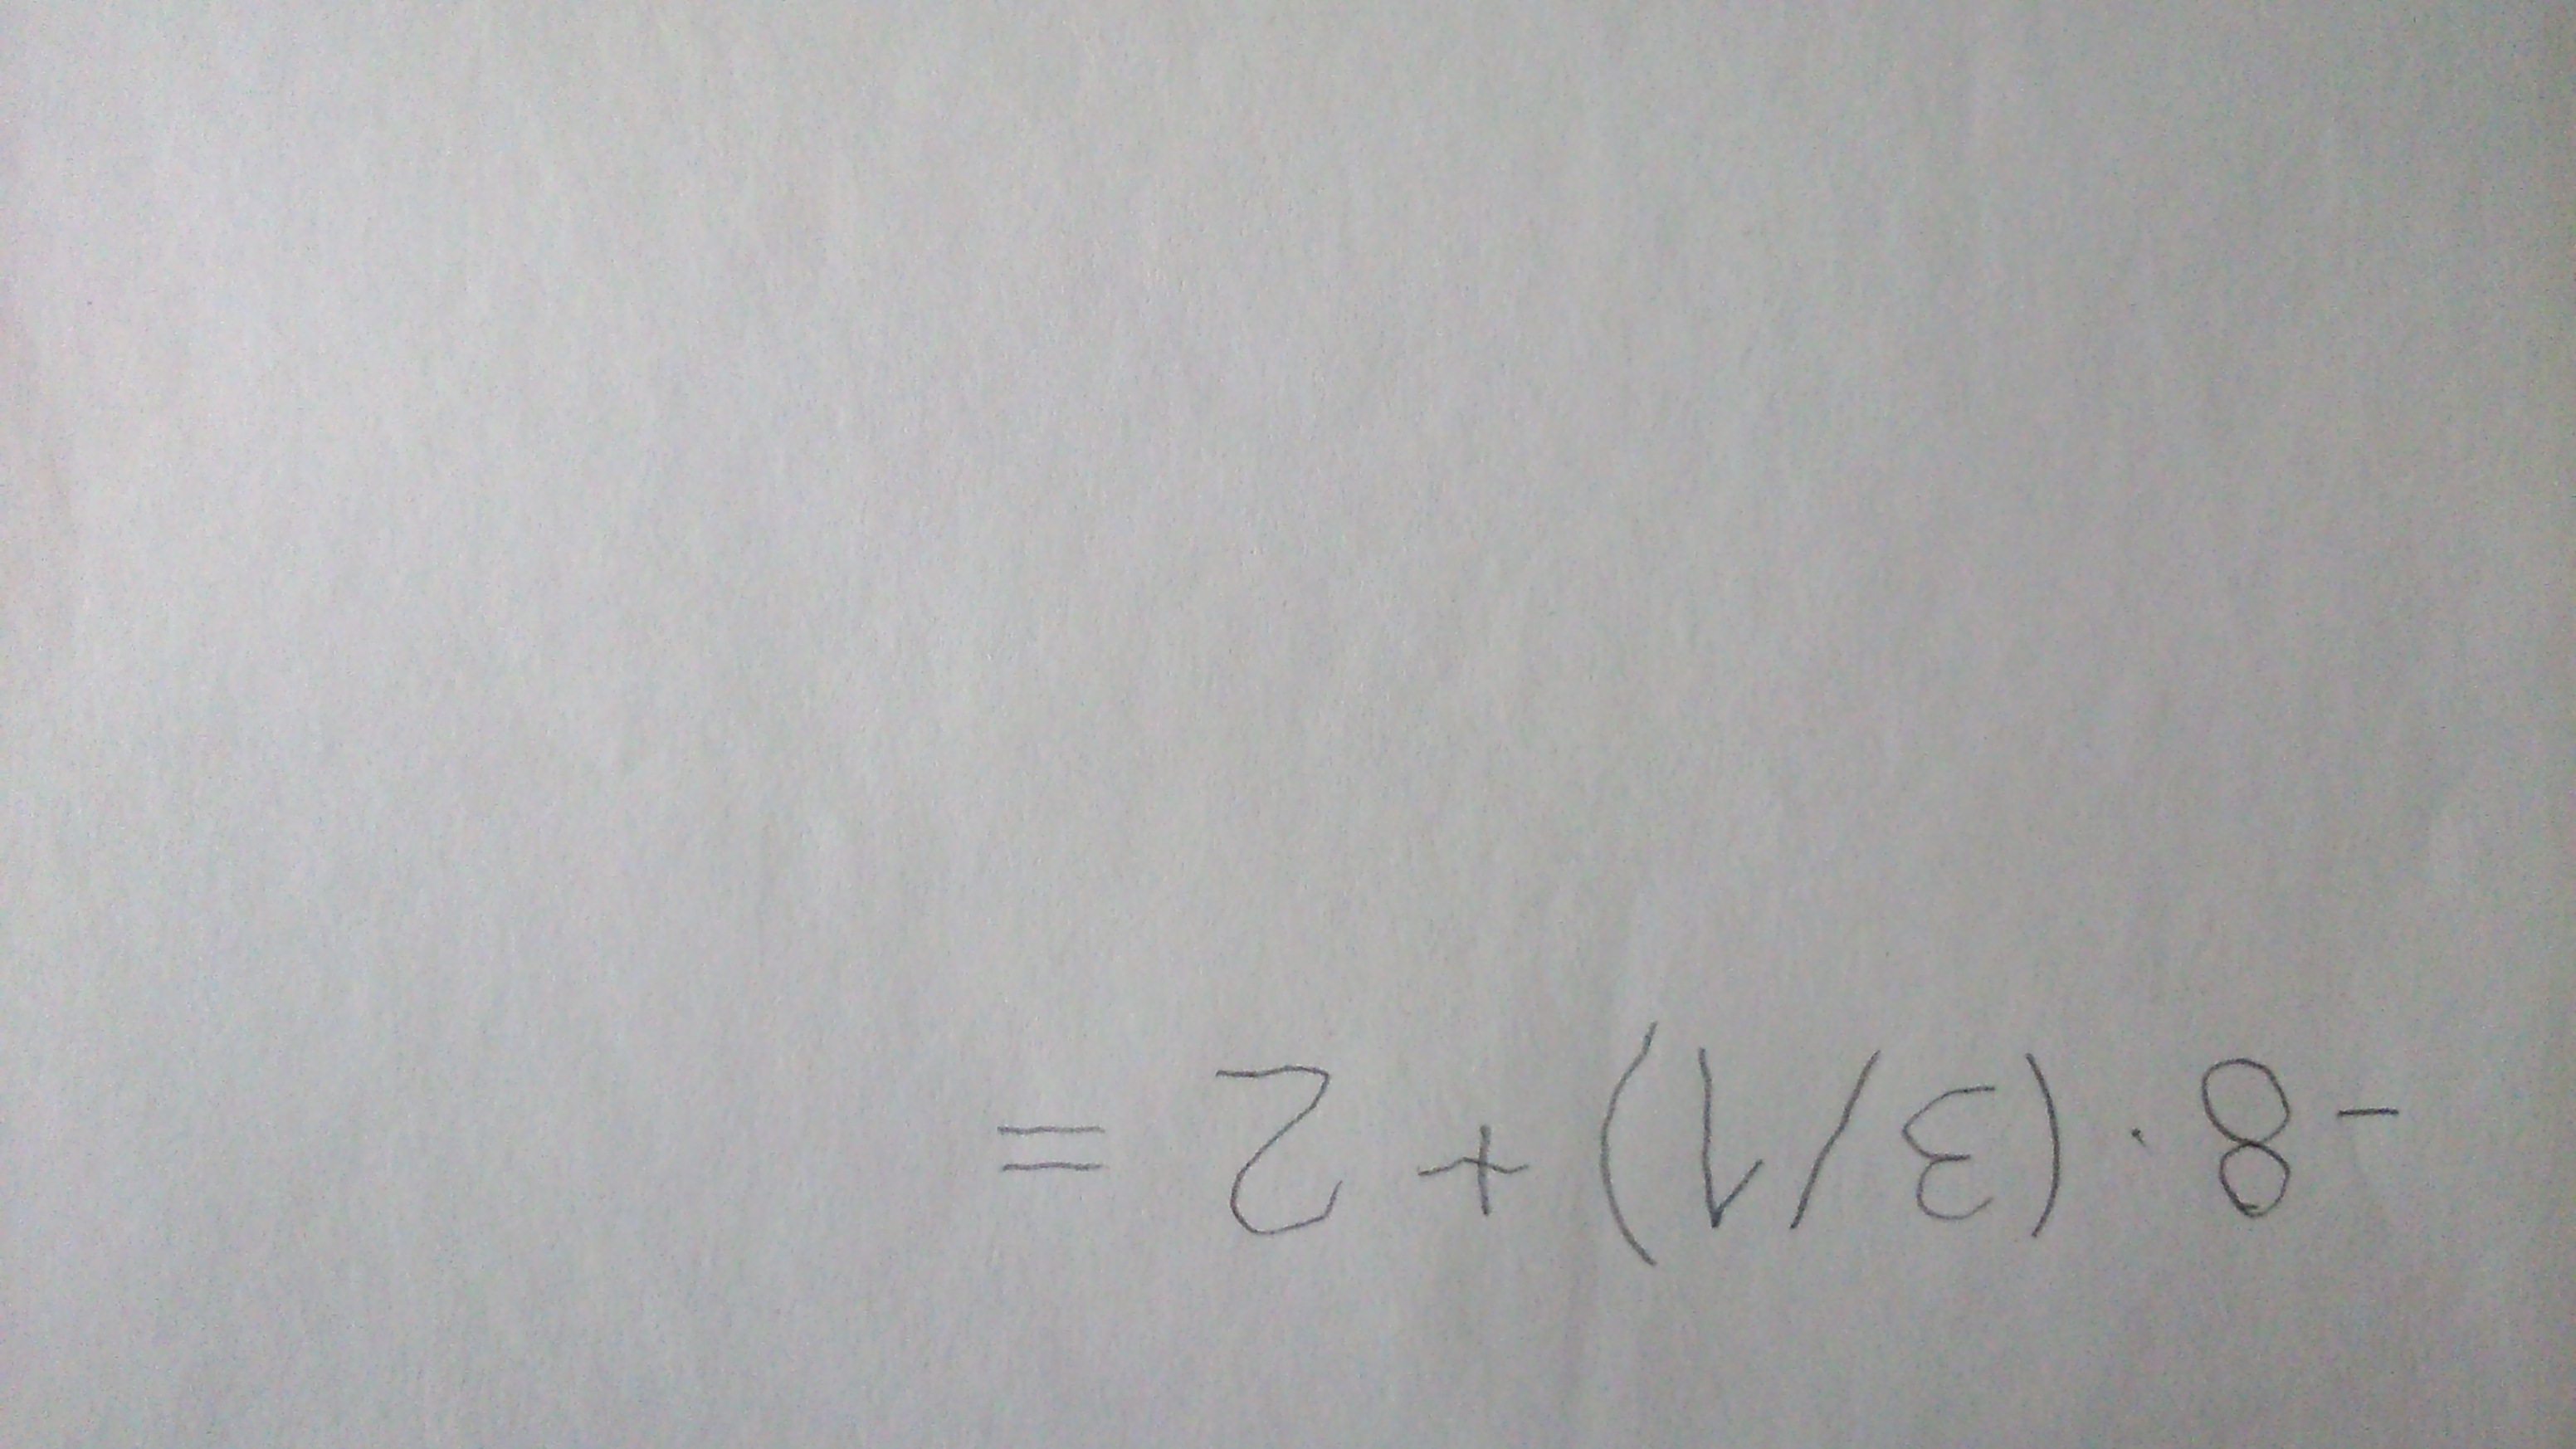 -8·(3/1)+2=